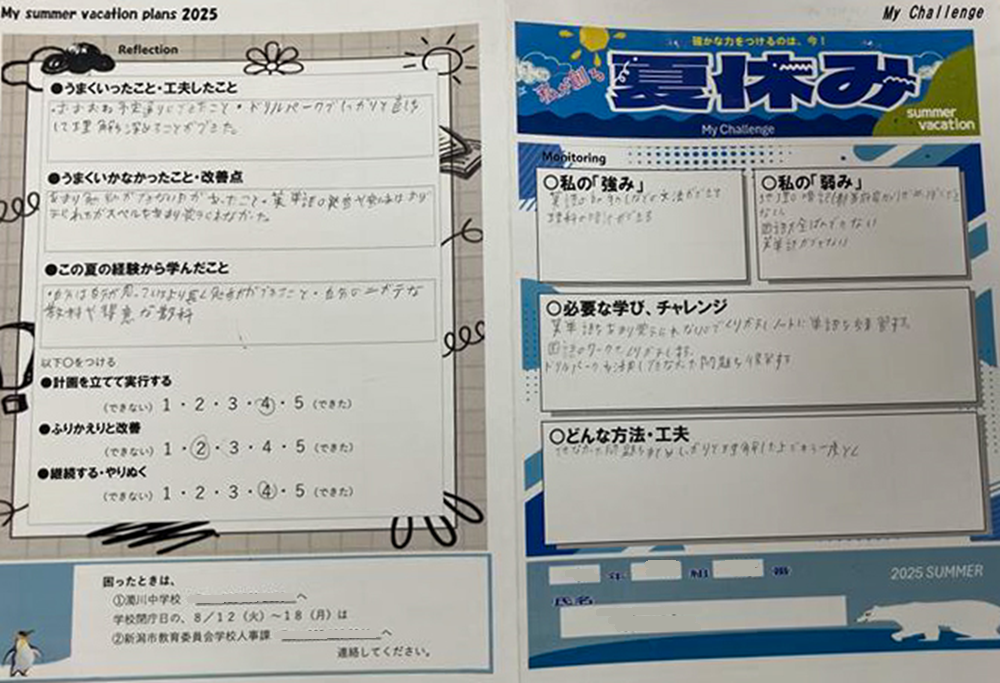 My summer vacation plans 2025
Reflection
●うまくいったこと・工夫したこと
・おおおね予定通りにできたこと・ドリルパークでしっかりと
して理解を深めることができた。
●うまくいかなかったこと・改善点
あまり勉強ができない日があったこと・英単語の
られたがスペルをあまり覚えられなかった。
●この夏の経験から学んだこと
・自分は自分が思っているより長く勉強ができること・自分のニガテな
教科や得意な教科
以下〇をつける
●計画を立てて実行する
（できない）1・2・3・4・5（できた）
●ふりかえりと改善
（できない）1・2・3・4・5（できた）
●継続する・やりぬく
（できない）1・2・3・4・5（できた）
困ったときは、
①濁川中学校 へ
学校閉庁日の、8／12（火）～18（月）は
②新潟市教育委員会学校人事課 へ
連絡してください。
My Challenge
確かな力をつけるのは、今！
私が創る
夏休み
summer
vacation
My Challenge
Monitoring
〇私の「強み」
英語の
理科の暗記ができる
〇私の「弱み」
地理の暗記
ない
国語が全然できない
英単語ができない
〇必要な学び、チャレンジ
英単語をあまり覚えられないのでくりかえしノートに単語を練習する。
国語のワークをくりかえします。
ドリルパークを活用してできなかった問題を復習する
〇どんな方法・工夫
できなかった問題を しっかりと理解した上でもう一度とく
年 組 番
氏名
2025 SUMMER